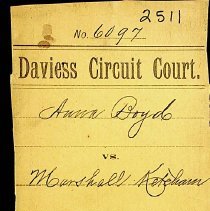 2511
No. 6097
Daviess Circuit Court.
Anna Boyd
VS.
Marshall Ketcham